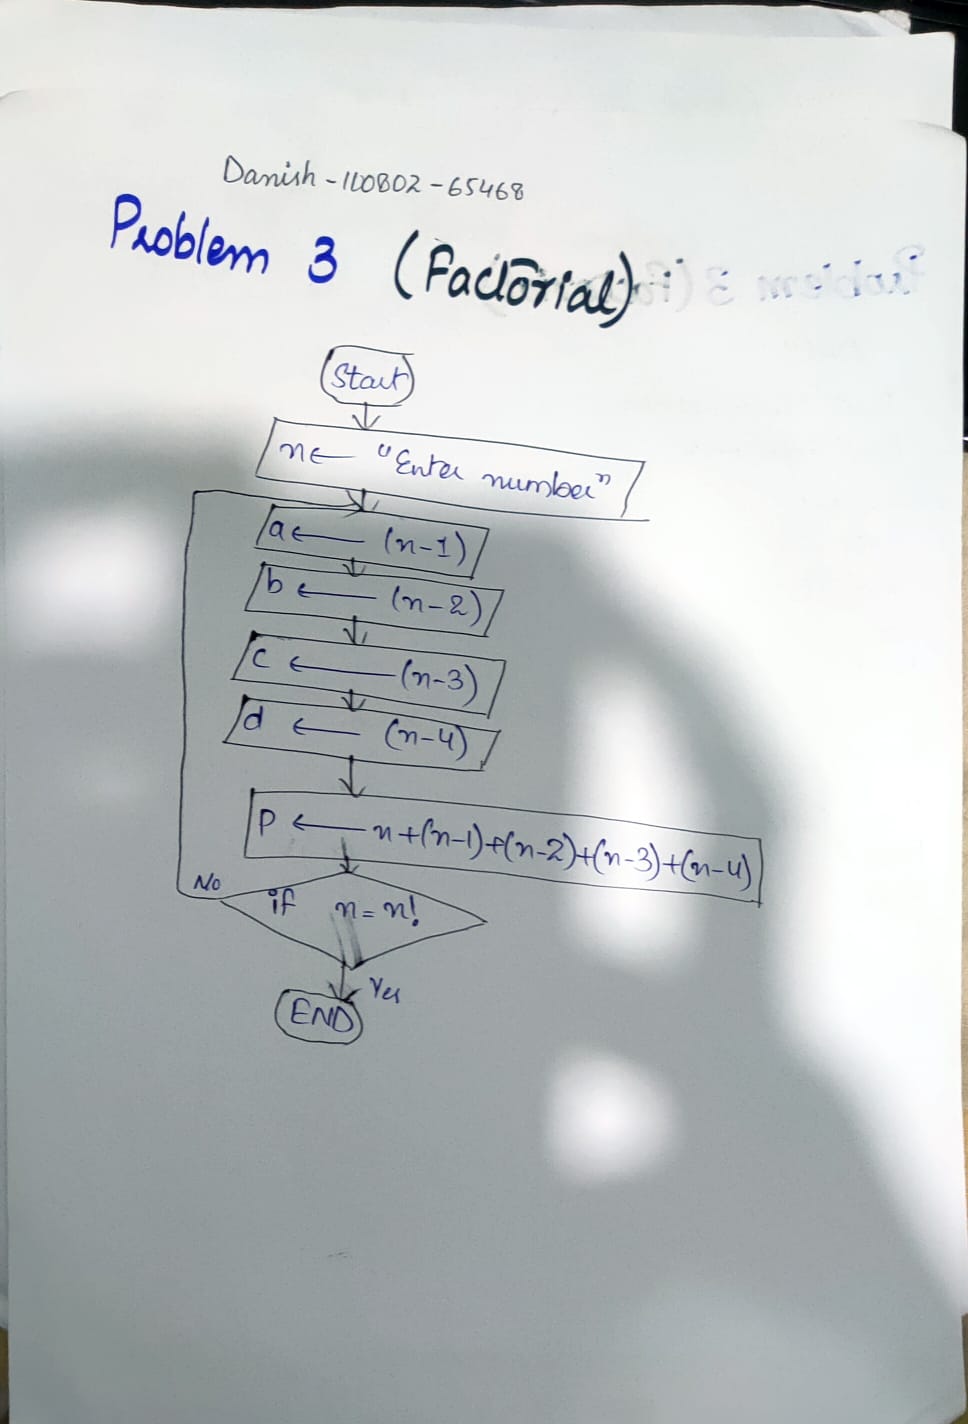 Danish - 110802 - 65468
Problem 3 (Factorial)
Start
n ← "Enter number"
a ← (n-1)
b ← (n-2)
c ← (n-3)
d ← (n-4)
P ← n+(n-1)+(n-2)+(n-3)+(n-4)
No
if n = n!
Yes
END